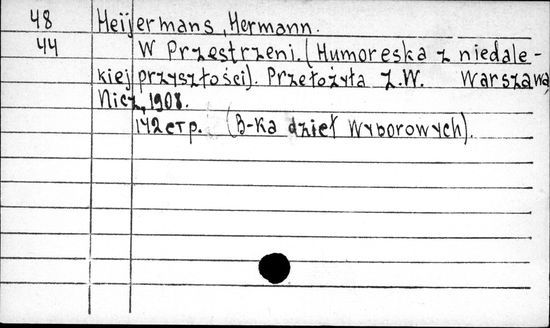 48 Heijermans, Hermann.
44 W Przestrzeni. (Humoreska z niedale-
kiej przyszłości). Przełożyła Z.W. Warszawa,
Nicz, 1908.
142 стр. (B-ka dzieł Wyborowych).